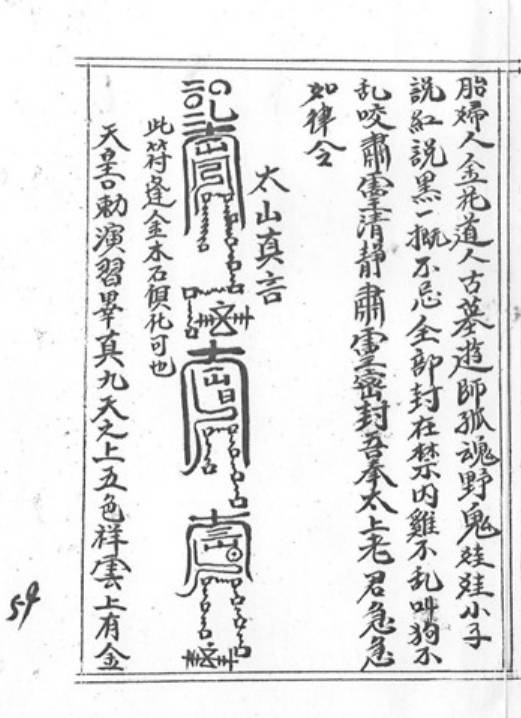 胎婦人金花道人古墓遊師孤魂野鬼娃娃小子
說紅說黑一概不忌全部封在禁內雞不乱叫狗不
乱咬肅灵清靜肅灵密封吾奉太上老君急急
如律令
太山真言
此符逢金木石俱化可也
天皇口勅演習畢真九天之上五色祥雲上有金
54